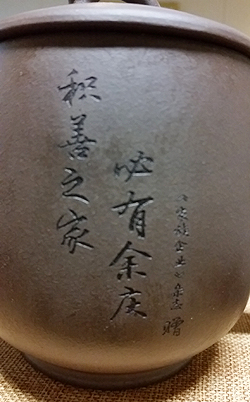 积善之家
必有余庆
企业
赠